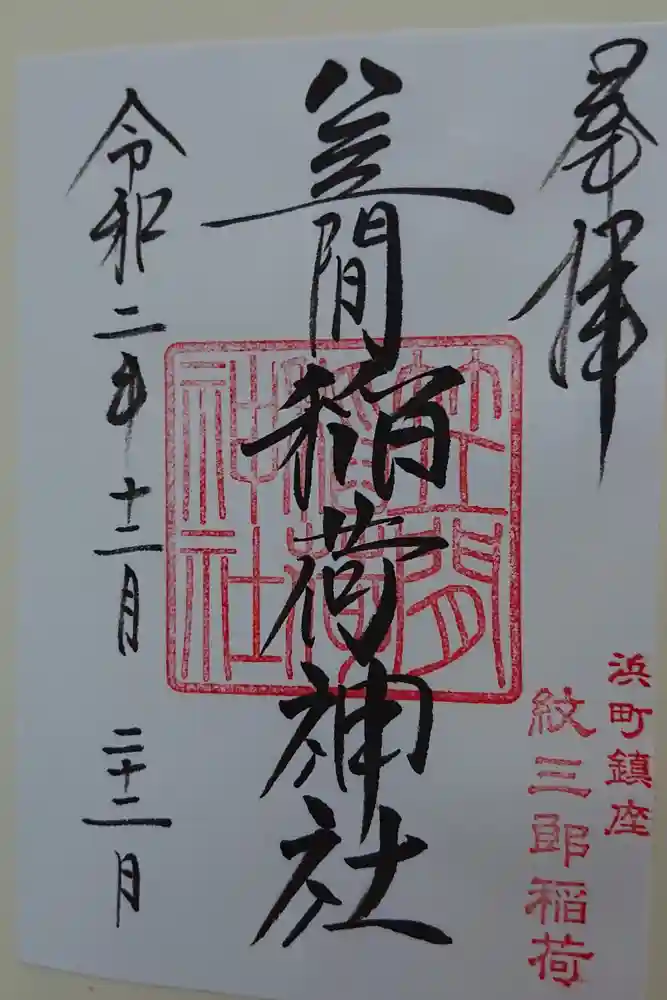 奉拝
笠間稲荷神社
笠間稲荷神社
令和二年十二月二十二月
浜町鎮座
紋三郎稲荷